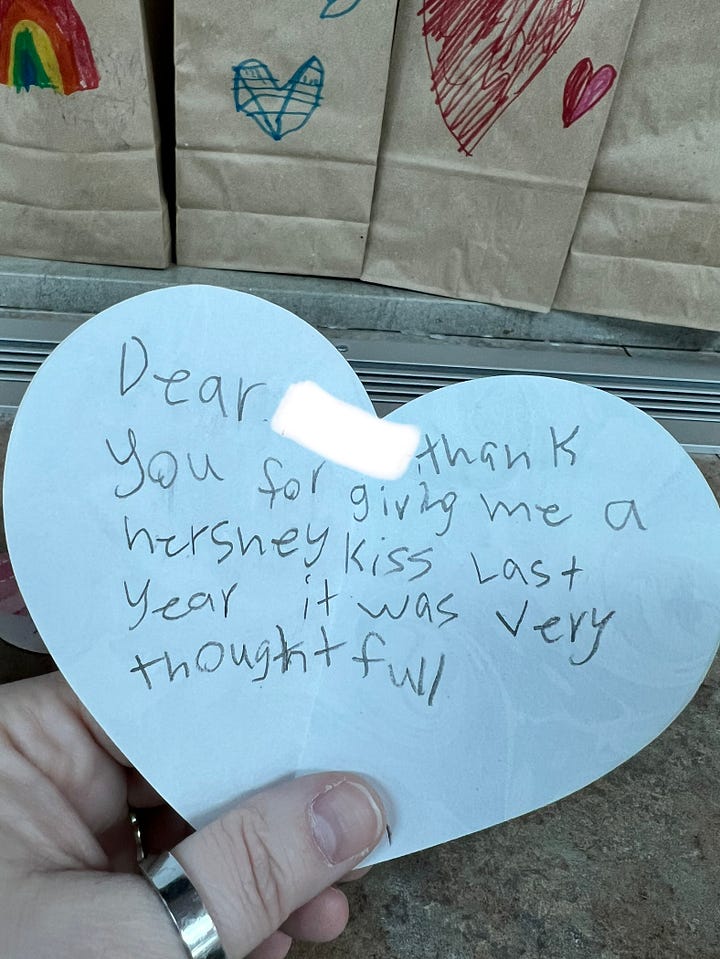 Dear
thank
you for giving me a
hershey kiss Last
year it was very
thoughtfull